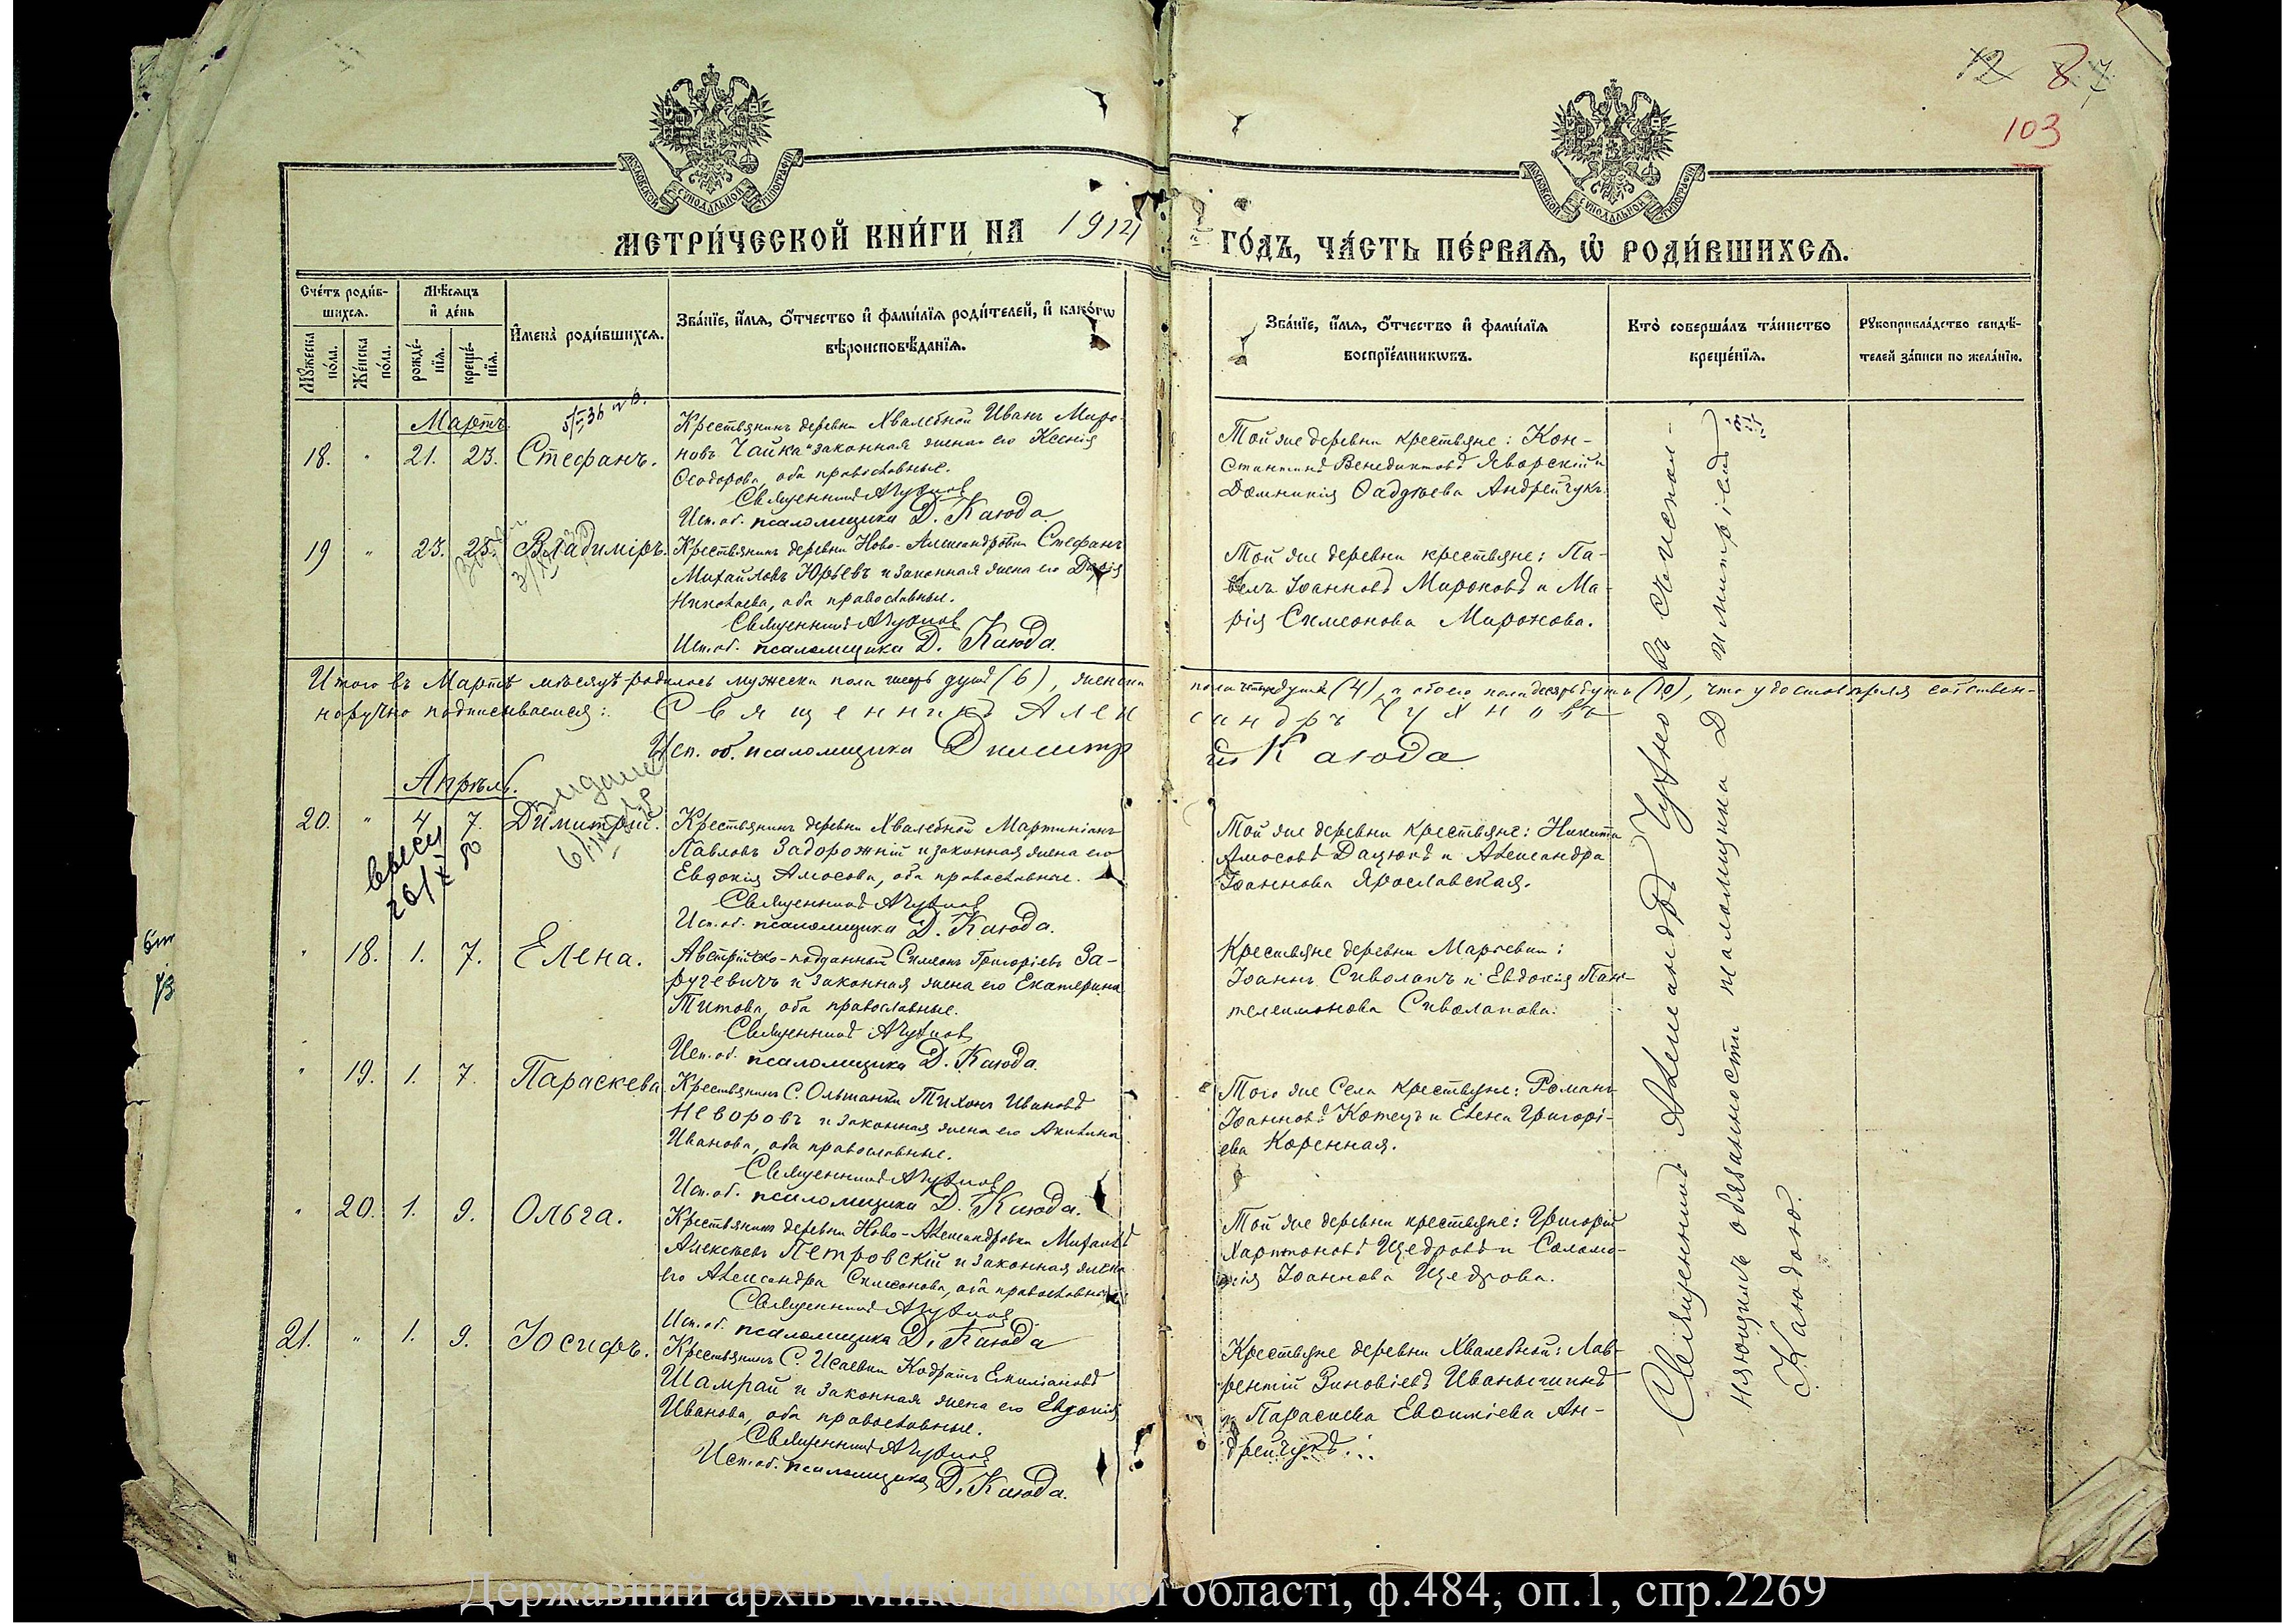 12 8 7
103
МОСКОВСКОЙ СѴНОДАЛЬНОЙ ТИПОГРАФІИ
МОСКОВСКОЙ СѴНОДАЛЬНОЙ ТИПОГРАФІИ
МЕТРИ́ЧЕСКОЙ КНИ́ГИ НА 1914
ГО́ДЪ, ЧА́СТЬ ПЕ́РВАЯ, Ѡ РОДИ́ВШИХСЯ.
Сче́тъ роди́в-
шихся.
Мѣ́сяцъ
и де́нь
Мꙋ́жеска по́ла.
Же́нска по́ла.
рожде́-
нїя.
креще́-
нїя.
И҆мена̀ роди́вшихся.
Зва́нїе, и҆́мя, ѻ҆́тчество и҆ фами́лїя роди́телей, и҆ како́гѡ
вѣроисповѣ́данїя.
Зва́нїе, и҆́мя, ѻ҆́тчество и҆ фами́лїя
воспрїе́мникѡвъ.
Кто̀ соверша́лъ та́инство
креще́нїя.
Рꙋкоприкла́дство свидѣ́-
телей за́писи по жела́нїю.
Мартъ.
18. " 21. 23. Стефанъ.
Крестьянинъ деревни Хвалебной Иванъ Миро-
новъ Чайка и законная жена его Ксенія
Ѳеодорова, оба православные.
Священникъ А Чухновъ
Исп. об. псаломщика Д. Каюда.
Той же деревни крестьяне: Кон-
стантинъ Венедиктовъ Яворскій и
Домникія Фаддѣева Андрейчукъ.
19 " 23. 25. Владиміръ.
Крестьянинъ деревни Ново-Александровки Стефанъ
Михайловъ Юрьевъ и законная жена его Дарія
Николаева, оба православные.
Священникъ А Чухновъ
Исп. об. псаломщика Д. Каюда.
Той же деревни крестьяне: Па-
велъ Іоанновъ Мироновъ и Ма-
рія Симеонова Миронова.
Итого въ Мартѣ мѣсяцѣ родилось мужеска пола шесть душъ (6), женска
пола четыре души (4), а обоего пола десять душъ (10), что удостовѣряя собствен-
норучно подписываемся: Священникъ Алек
сандръ Чухновъ
Исп. об. псаломщика Димитр
ій Каюда
Апрѣль.
20. " 4 7. Димитрій.
Крестьянинъ деревни Хвалебной Мартиніанъ
Павловъ Задорожній и законная жена его
Евдокія Амосова, оба православные.
Священникъ А Чухновъ
Исп. об. псаломщика Д. Каюда.
Той же деревни крестьяне: Никита
Амосовъ Дацюкъ и Александра
Іоаннова Ярославская.
" 18. 1. 7. Елена.
Австрійско-подданный Симеонъ Григоріевъ За-
ручевичъ и законная жена его Екатерина
Титова, оба православные.
Священникъ А Чухновъ
Исп. об. псаломщика Д. Каюда.
Крестьяне деревни Маріевки:
Іоаннъ Сиволапъ и Евдокія Пан-
телеимонова Сиволапова.
" 19. 1. 7. Параскева
Крестьянинъ С. Ольшанки Тихонъ Ивановъ
Неворовъ и законная жена его Акилина
Иванова, оба православные.
Священникъ А Чухновъ
Исп. об. псаломщика Д. Каюда.
Того же Села крестьяне: Романъ
Іоанновъ Котецъ и Елена Григорі-
ева Коренная.
" 20. 1. 9. Ольга.
Крестьянинъ деревни Ново-Александровки Михаилъ
Алексѣевъ Петровскій и законная жена
его Александра Симеонова, оба православные
Священникъ А Чухновъ
Исп. об. псаломщика Д. Каюда
Той же деревни крестьяне: Григорій
Харитоновъ Щедровъ и Соломо-
нія Іоаннова Щедрова.
21. " 1. 9. Іосифъ.
Крестьянинъ С. Исаевки Кодратъ Емиліановъ
Шамрай и законная жена его Евдокія
Иванова, оба православные.
Священникъ А Чухновъ
Исп. об. псаломщика Д. Каюда.
Крестьяне деревни Хвалебной: Лав-
рентій Зиновіевъ Иванышинъ
и Параскева Евфиміева Ан-
дрейчукъ.
Священникъ Александръ Чухновъ съ исполн-
няющимъ обязанности псаломщика Димитріемъ
Каюдою.
Державний архів Миколаївської області, ф.484, оп.1, спр.2269